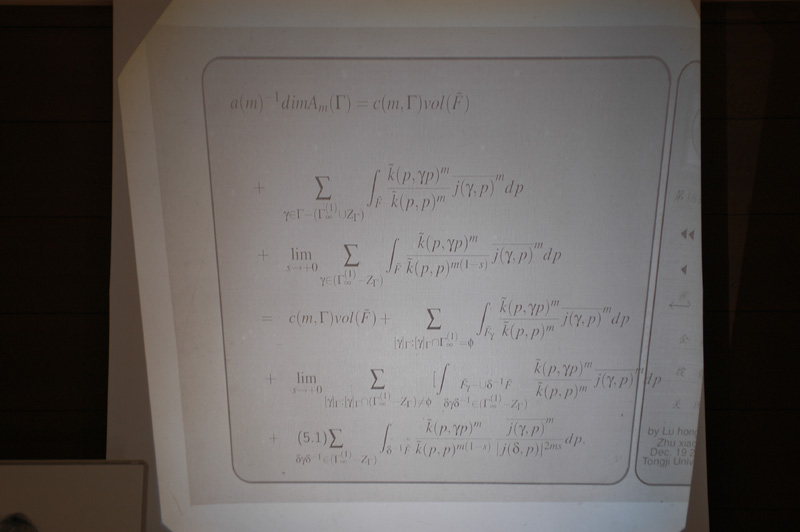 a(m)^{-1}dimA_m(Γ) = c(m,Γ)vol(F̃)
+ ∑_{γ∈Γ-(Γ_∞^{(1)}∪Z_Γ)} ∫_{F̃} \frac{k̃(p,γp)^m}{k̃(p,p)^m} \overline{j(γ,p)}^m dp
+ lim_{s→+0} ∑_{γ∈(Γ_∞^{(1)}-Z_Γ)} ∫_{F̃} \frac{k̃(p,γp)^m}{k̃(p,p)^{m(1-s)}} \overline{j(γ,p)}^m dp
= c(m,Γ)vol(F̃) + ∑_{[γ]_Γ:[γ]_Γ∩Γ_∞^{(1)}=ϕ} ∫_{F̃_γ} \frac{k̃(p,γp)^m}{k̃(p,p)^m} \overline{j(γ,p)}^m dp
+ lim_{s→+0} ∑_{[γ]_Γ:[γ]_Γ∩(Γ_∞^{(1)}-Z_Γ)≠ϕ} [∫_{F̃_γ-∪δ^{-1}F̃ δγδ^{-1}∈(Γ_∞^{(1)}-Z_Γ)} \frac{k̃(p,γp)^m}{k̃(p,p)^m} \overline{j(γ,p)}^m dp
+ (5.1)∑_{δγδ^{-1}∈(Γ_∞^{(1)}-Z_Γ)} ∫_{δ^{-1}F̃} \frac{k̃(p,γp)^m}{k̃(p,p)^{m(1-s)}} \frac{\overline{j(γ,p)}^m}{|j(δ,p)|^{2ms}} dp.
by Lu
Zhu
Dec. 19
Tongji